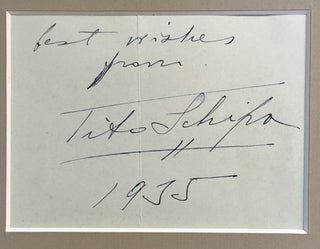 best wishes
from
Tito Schipa
1935